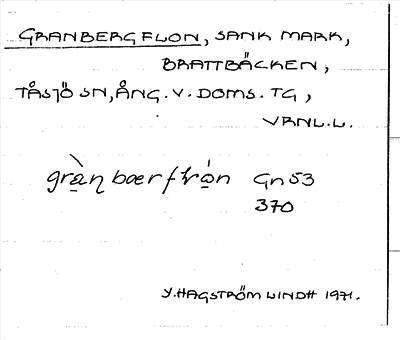 GRANBERGFLON, SANK MARK,
BRATTBÄCKEN,
TÅSJÖ SN, ÅNG. V. DOMS. TG,
VRNL.L.
Gn 53
370
Y. HAGSTRÖM LINDH 1971.